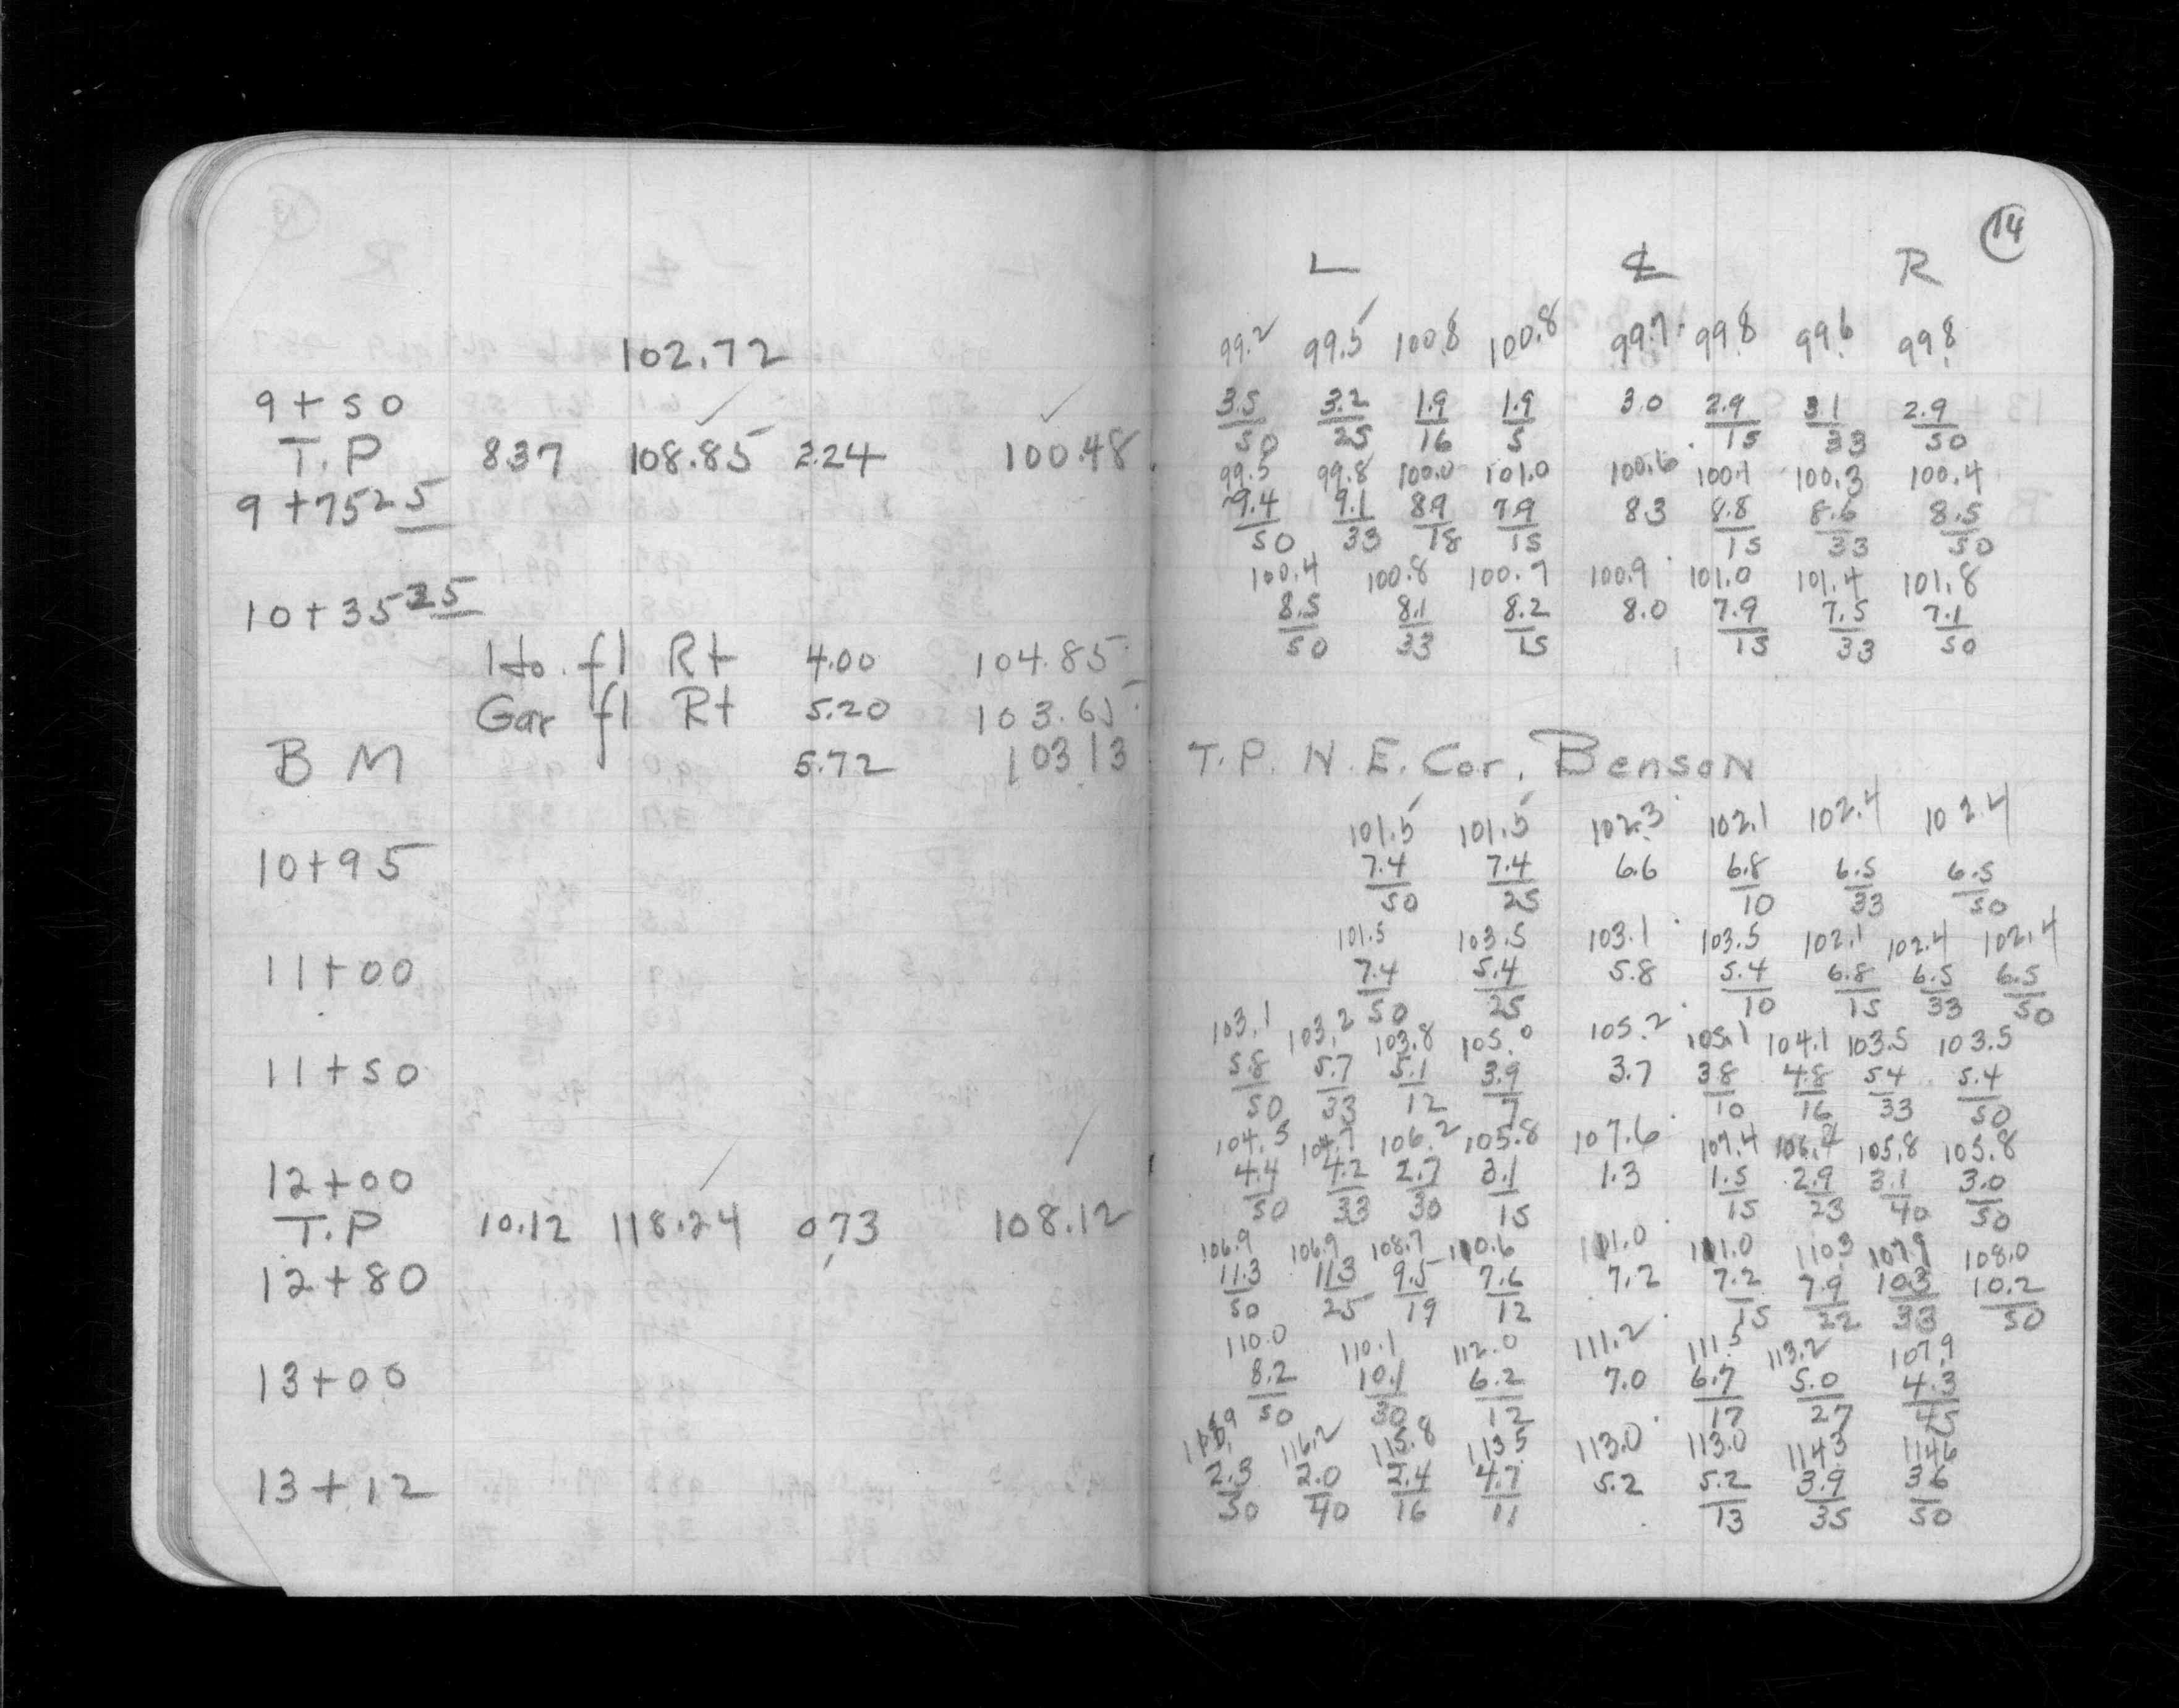 102.72
9+50
T.P 8.37 108.85 2.24 100.48
9+75 25
10+35 25
Ho. fl Rt 4.00 104.85
Gar fl Rt 5.20 103.65
B M 5.72 103.13
10+95
11+00
11+50
12+00
T.P 10.12 118.24 0.73 108.12
12+80
13+00
13+12
14
L ℄ R
99.2 99.5 100.8 100.8 99.7 99.8 99.6 99.8
3.5 3.2 1.9 1.9 3.0 2.9 3.1 2.9
50 25 16 5 15 33 50
99.5 99.8 100.0 101.0 100.6 100.1 100.3 100.4
9.4 9.1 8.9 7.9 8.3 8.8 8.6 8.5
50 33 18 15 15 33 50
100.4 100.8 100.7 100.9 101.0 101.4 101.8
8.5 8.1 8.2 8.0 7.9 7.5 7.1
50 33 15 15 33 50
T.P. N.E. Cor. Benson
101.5 101.5 102.3 102.1 102.4 102.4
7.4 7.4 6.6 6.8 6.5 6.5
50 25 10 33 50
101.5 103.5 103.1 103.5 102.1 102.4 102.4
7.4 5.4 5.8 5.4 6.8 6.5 6.5
50 25 10 15 33 50
103.1 103.2 103.8 105.0 105.2 105.1 104.1 103.5 103.5
5.8 5.7 5.1 3.9 3.7 3.8 4.8 5.4 5.4
50 33 12 7 10 16 33 50
104.5 104.7 106.2 105.8 107.6 107.4 105.8 105.8
4.4 4.2 2.7 3.1 1.3 1.5 2.9 3.1 3.0
50 33 30 15 15 23 40 50
106.9 106.9 108.7 110.6 111.0 111.0 110.3 107.9 108.0
11.3 11.3 9.5 7.6 7.2 7.2 7.9 10.3 10.2
50 25 19 12 15 22 33 50
110.0 110.1 112.0 111.2 111.5 113.2 107.9
8.2 10.1 6.2 7.0 6.7 5.0 4.3
50 30 12 17 27 45
116.2 115.8 113.5 113.0 113.0 114.3 114.6
2.3 2.0 2.4 4.7 5.2 5.2 3.9 3.6
50 40 16 11 13 35 50